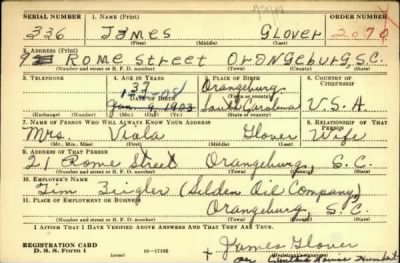 SERIAL NUMBER 1. NAME (Print) ORDER NUMBER
336 James Glover 2070
(First) (Middle) (Last)
2. ADDRESS (Print)
Rome Street Orangeburg, S.C.
(Number and street or R. F. D. number) (Town) (County) (State)
3. TELEPHONE 4. AGE IN YEARS 5. PLACE OF BIRTH 6. COUNTRY OF CITIZENSHIP
37 Orangeburg
DATE OF BIRTH (Town or county)
1903 South Carolina U.S.A.
(Exchange) (Number) (Mo.) (Day) (Yr.) (State or country)
7. NAME OF PERSON WHO WILL ALWAYS KNOW YOUR ADDRESS 8. RELATIONSHIP OF THAT PERSON
Mrs. Viola Glover Wife
(Mr., Mrs., Miss) (First) (Middle) (Last)
9. ADDRESS OF THAT PERSON
21 Rome Street Orangeburg, S.C.
(Number and street or R. F. D. number) (Town) (County) (State)
10. EMPLOYER'S NAME
Jim Zeigler (Oil Company)
11. PLACE OF EMPLOYMENT OR BUSINESS
Orangeburg, S.C.
(Number and street or R. F. D. number) (Town) (County) (State)
I AFFIRM THAT I HAVE VERIFIED ABOVE ANSWERS AND THAT THEY ARE TRUE.
REGISTRATION CARD
D. S. S. Form 1 (over) 16-17105
+ James Glover
(Registrant's signature)